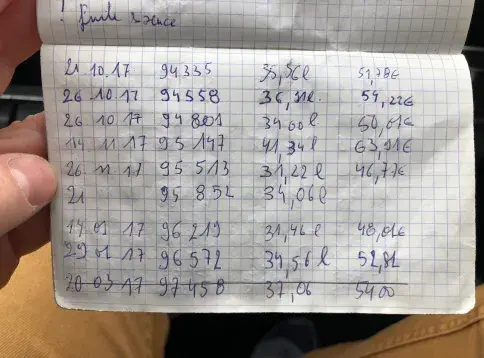 21 10.17 94335 35,56l 51,78€
26.10.17 94558 36,91l. 54,22€
26 10.17 94801 3400l 50,01€
14 11 17 95147 41,34l 63,01€
26 11 17 95513 31,22l 46,77€
21 95852 34,06l
14 01 17 96219 31,46l 48,01€
29 01 17 96572 34,56l 52,82
20 03 17 97458 37,06 5400